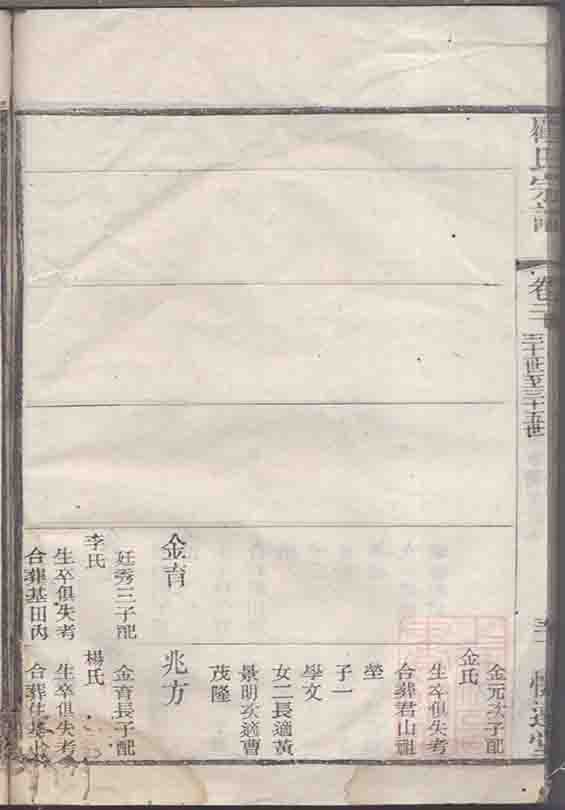 氏宗譜
卷二
三十世至三十五世
金元次子配
金氏
生卒俱失考
合葬君山祖
塋
子一
學文
女二長適黃
景明次適曹
茂隆
金育
廷秀三子配
李氏
生卒俱失考
合葬基田內
兆方
金育長子配
楊氏
生卒俱失考
合葬